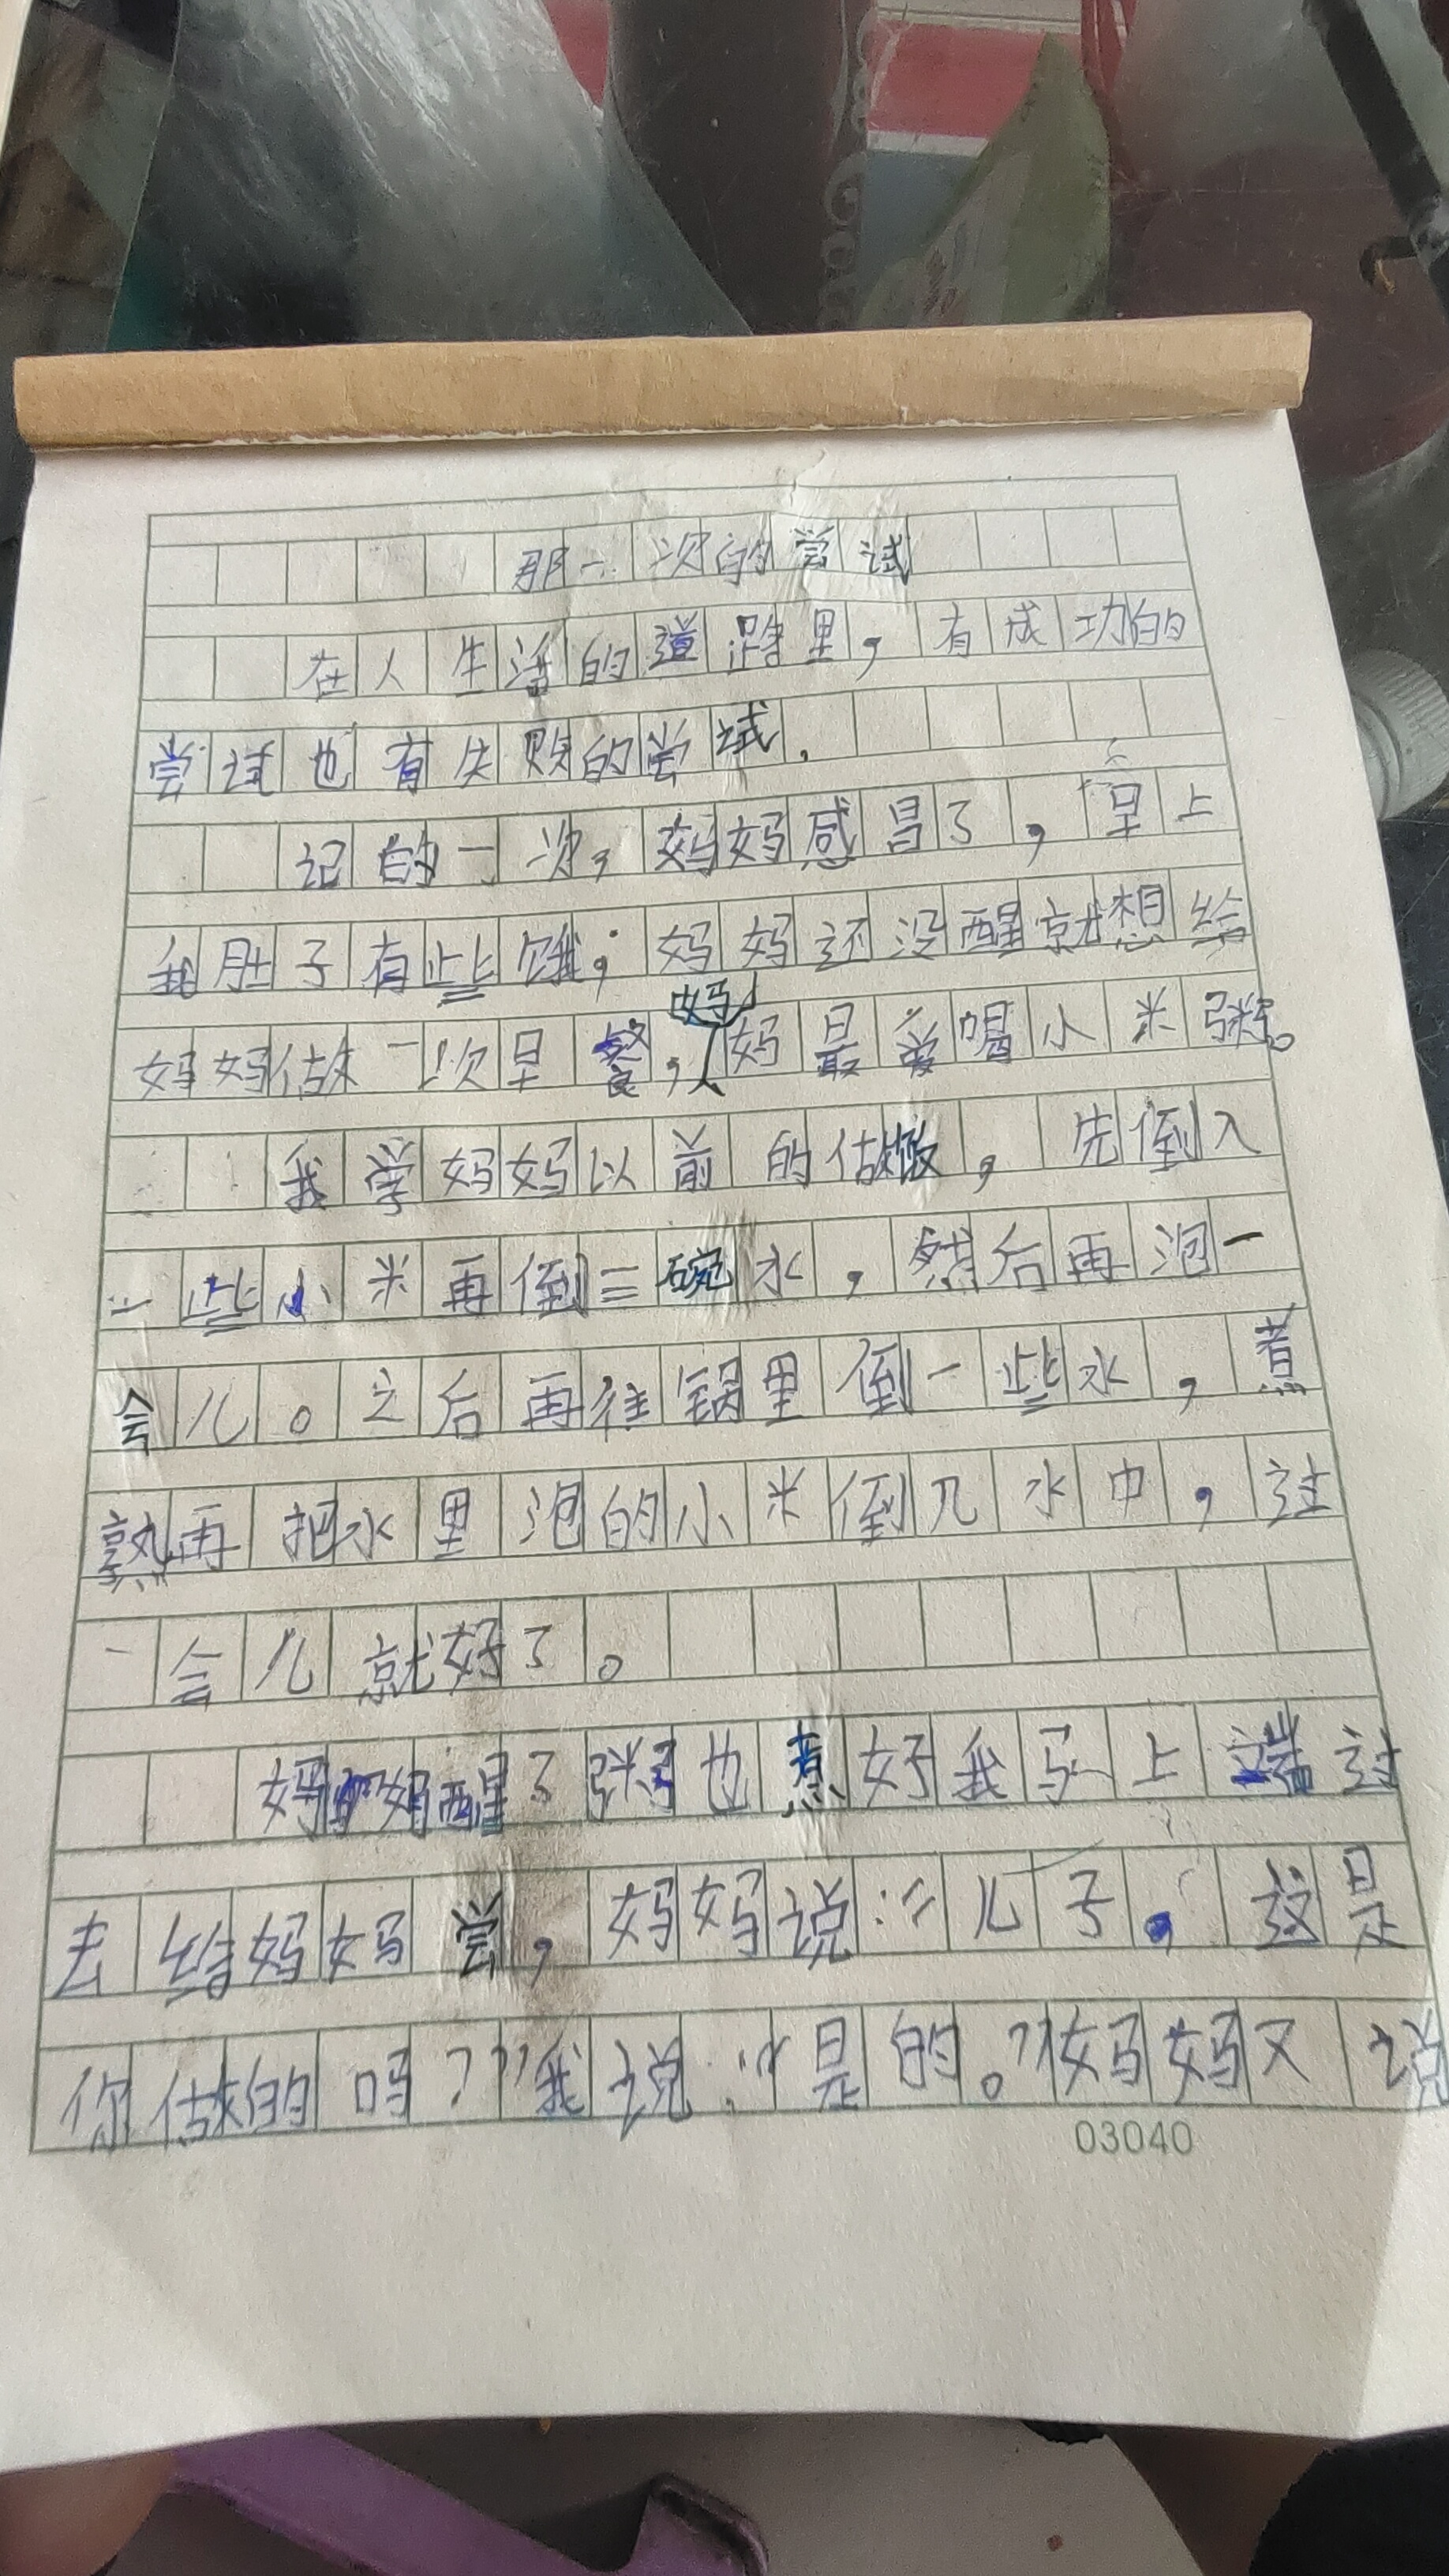 那一次的尝试
在人生活的道路里，有成功的
尝试也有失败的尝试.
记的一次，妈妈感昌了，早上
我肚子有些饿；妈妈还没醒就想给
妈妈做一次早餐，妈妈最爱喝小米粥。
我学妈妈以前的做做，先倒入
一些小米再倒三碗水，然后再泡一
会儿。之后再往锅里倒一些水，煮
熟再把水里泡的小米倒兀水中，过
一会儿就好了。
妈妈醒了粥也煮好我马上端过
去给妈妈尝，妈妈说：“儿子，这是
你做的吗？”我说：“是的。”妈妈又说
03040